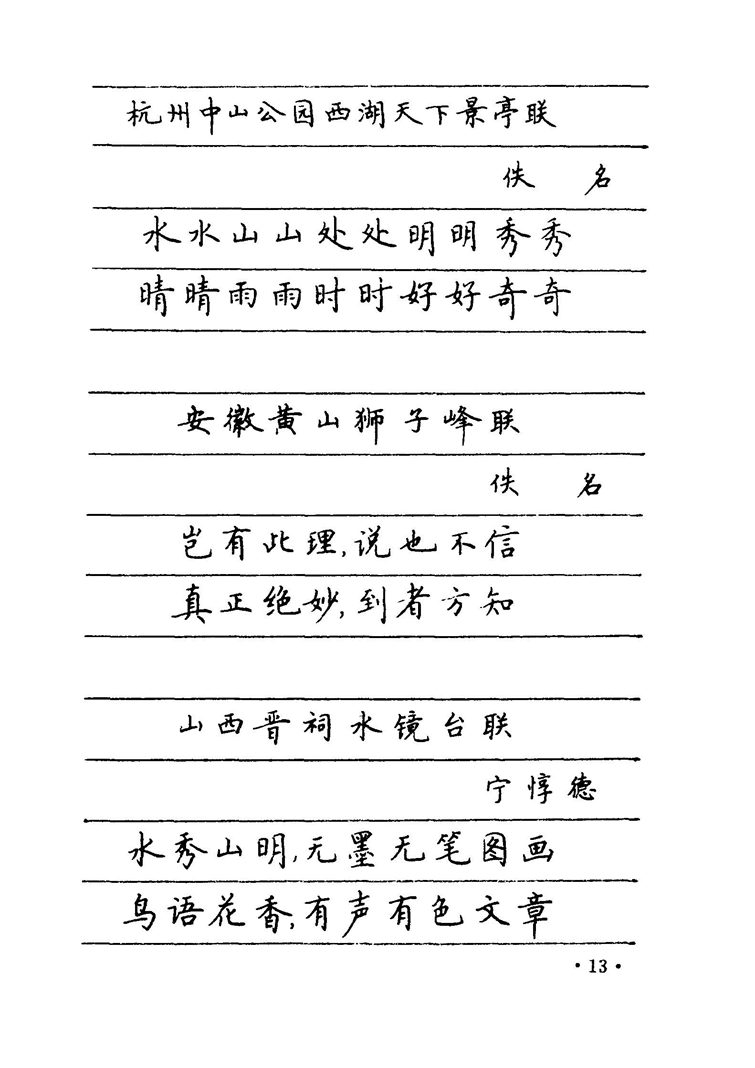 杭州中山公园西湖天下景亭联
佚 名
水水山山处处明明秀秀
晴晴雨雨时时好好奇奇
安徽黄山狮子峰联
佚 名
岂有此理,说也不信
真正绝妙,到者方知
山西晋祠水镜台联
宁惇德
水秀山明,无墨无笔图画
鸟语花香,有声有色文章
·13·